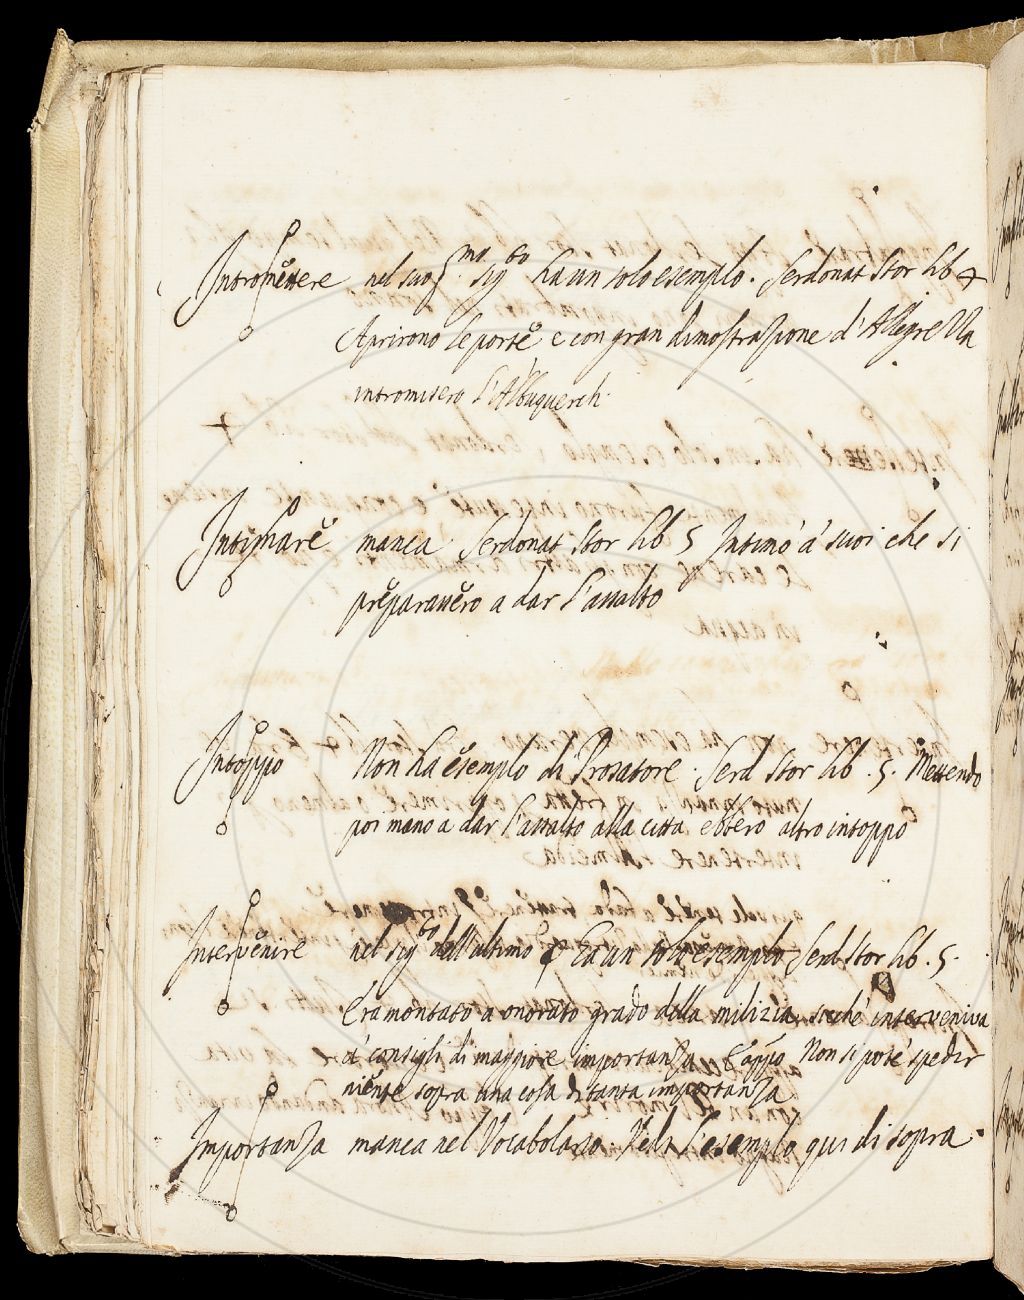 Intromettere nel suo p.mo sig.to ha un solo esempio. Serdonat Stor lib 4
Aprirono le porte e con gran dimostrazione d'Allegrezza
intromisero l'Albuquerch.
Intimare manca Serdonat Stor lib 5 Intimò a' suoi che si
preparassero a dar l'assalto
Intoppo Non ha esempio di Prosatore. Serd Stor lib. 5. Mettendo
poi mano a dar l'assalto alla città ebbero altro intoppo
Intervenire nel sig.to dell'ultimo Ha un solo esempio Serd Stor lib. 5.
Era montato a onorato grado della milizia, sicchè interveniva
a' consigli di maggiore importanza E appo Non si potè spedir
niente sopra una cosa di tanta importanza
Importanza manca nel Vocabolario. Vedi l'esempio qui di sopra.